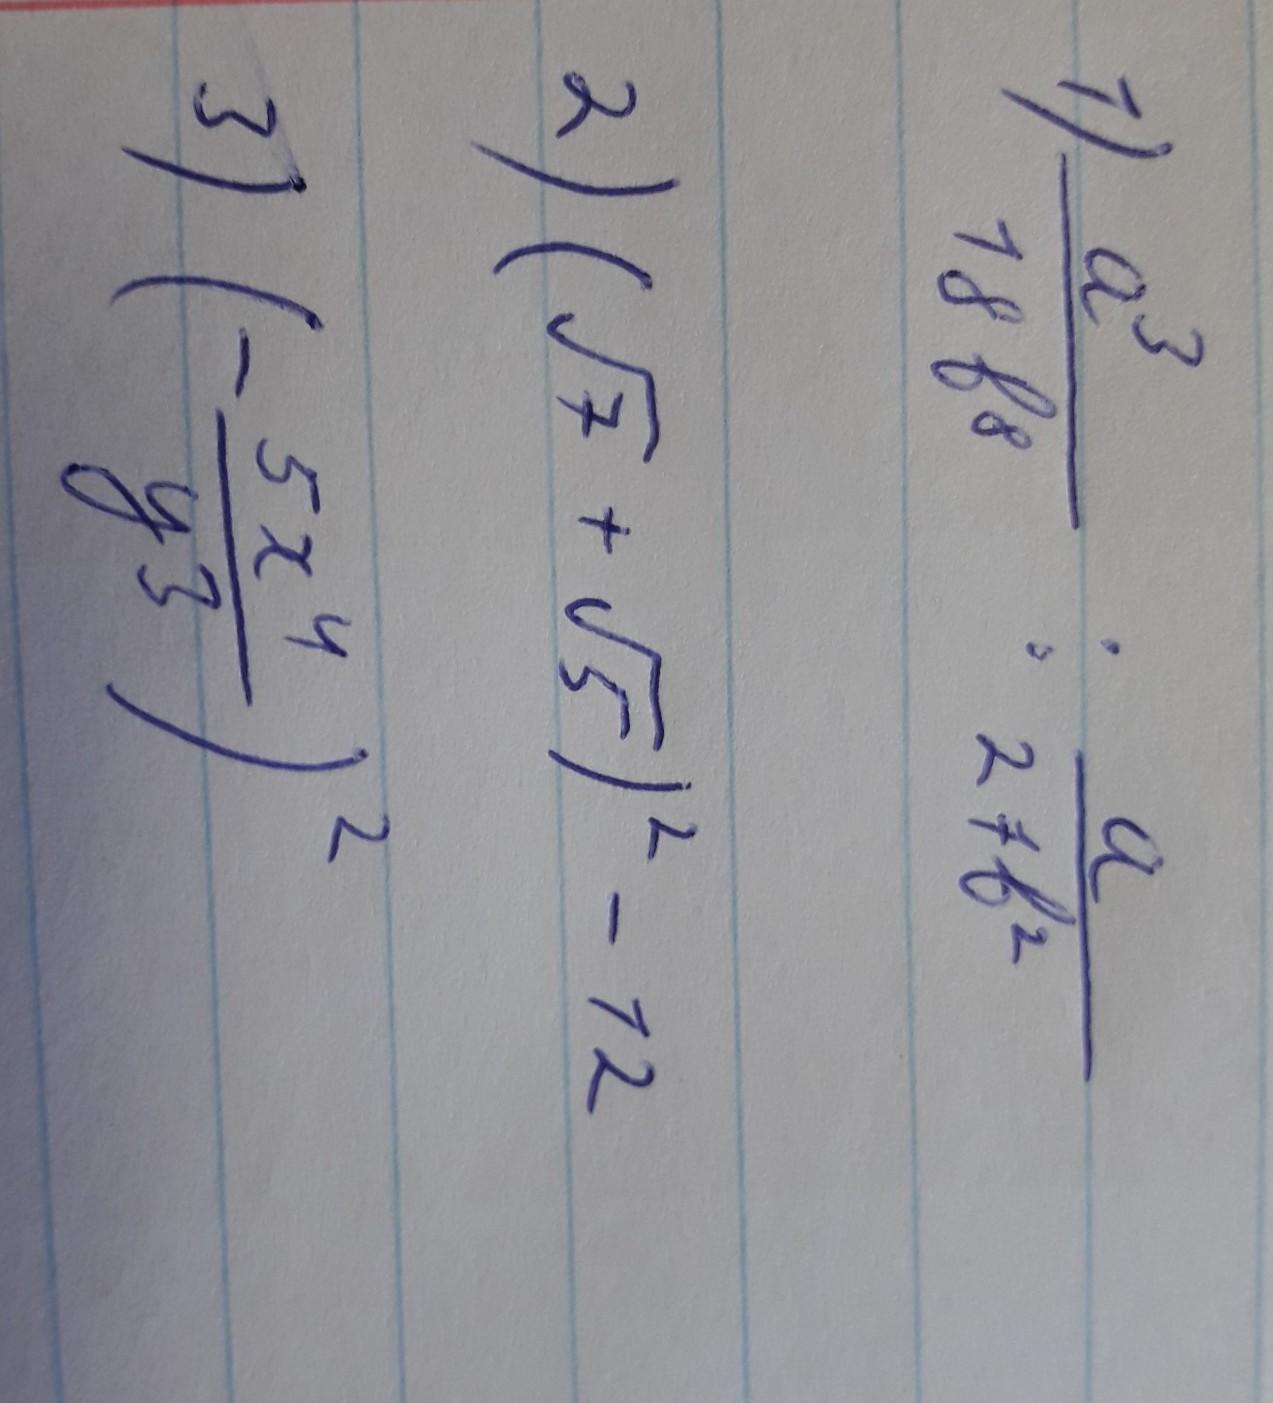 1) a³/18b⁸ : a/27b²
2) (√7 + √5)² - 12
3) (- 5x⁴/y³)²